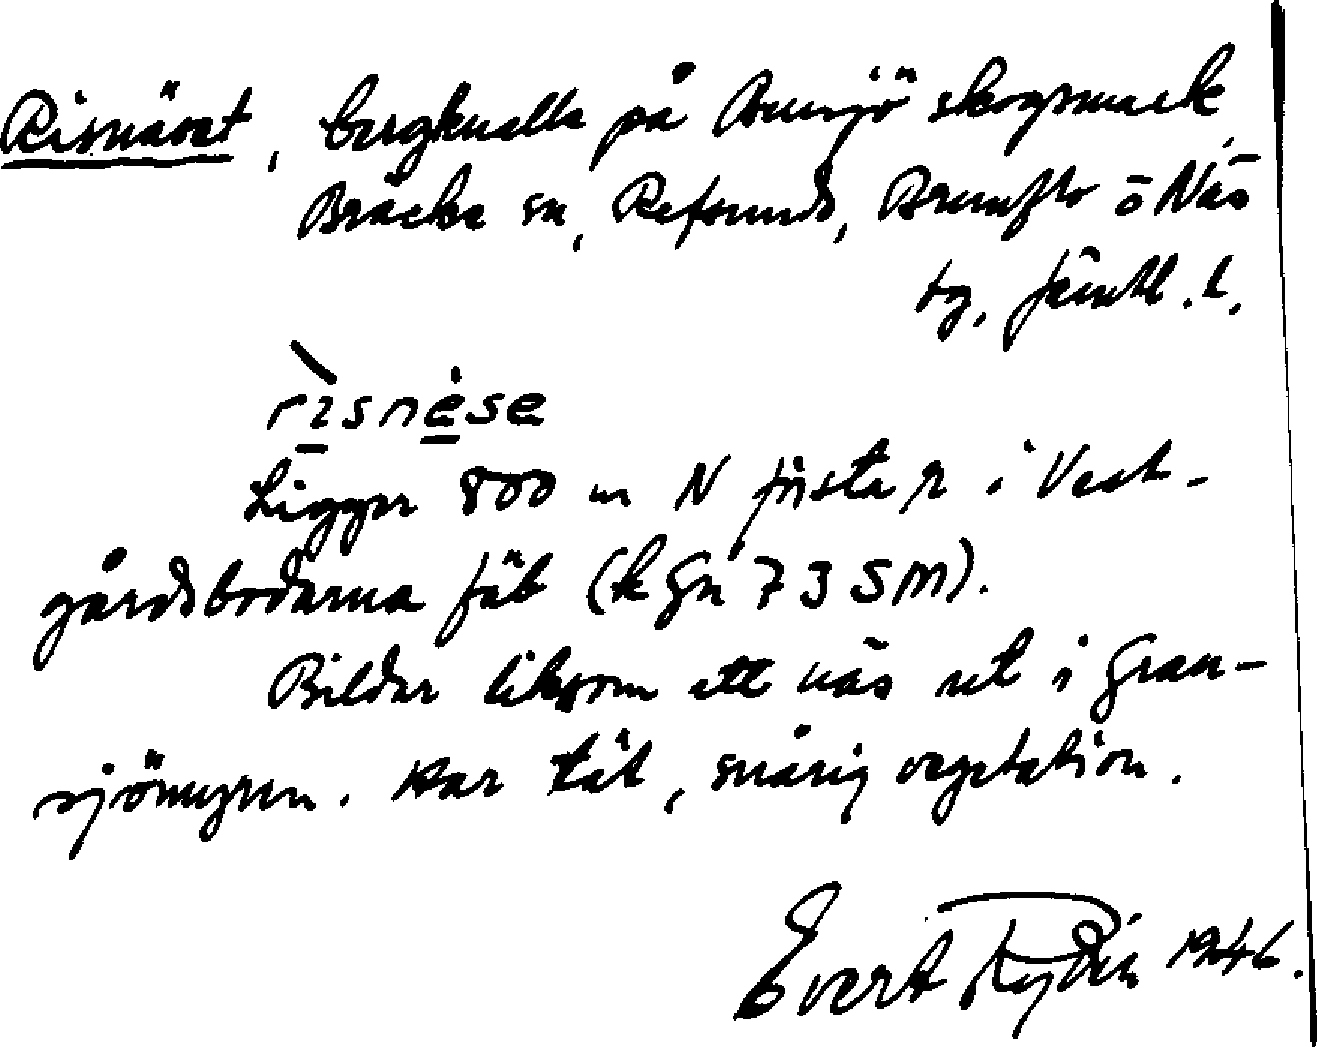 Risnäset, bergknalle på Bensjö skogsmark,
Bräcke sn, Refsunds, Brunflo o Näs
tg, Jämtl. l.
rìsnèse
Ligger 800 m N   i Väst-
gårdsbodarna fäb (k Gn 73 SM).
Bildar liksom ett näs ut i Gran-
sjömyren. Har tät, snårig vegetation.
Evert Rydén 1946.